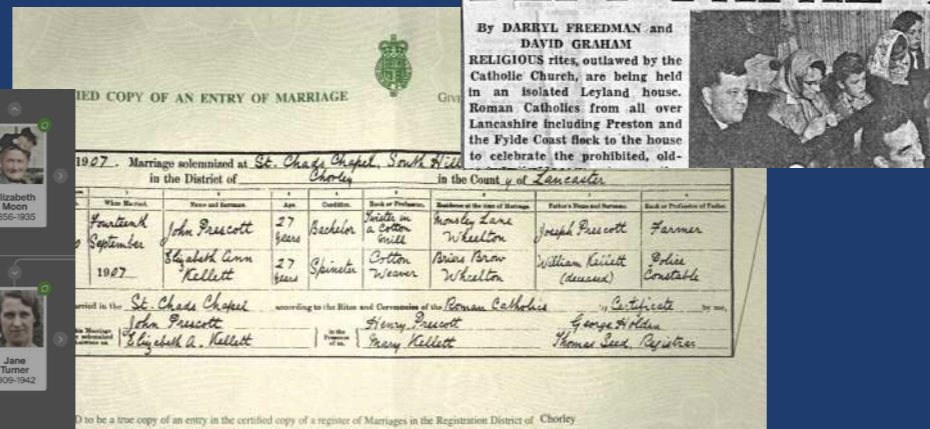 By DARRYL FREEDMAN and
DAVID GRAHAM
RELIGIOUS rites, outlawed by the
Catholic Church, are being held
in an isolated Leyland house.
Roman Catholics from all over
Lancashire including Preston and
the Fylde Coast flock to the house
to celebrate the prohibited, old-
IED COPY OF AN ENTRY OF MARRIAGE
1907. Marriage solemnized at St. Chads Chapel, South Hill
in the District of Chorley in the County of Lancaster
When Married. Name and Surname. Age. Condition. Rank or Profession. Residence at the time of Marriage. Father's Name and Surname. Rank or Profession of Father.
Fourteenth September 1907
John Prescott 27 years Bachelor Twister in a Cotton Mill Wheelton Joseph Prescott Farmer
Elizabeth Ann Kellett 27 years Spinster Cotton Weaver Briars Brow Wheelton William Kellett (deceased) Police Constable
rried in the St. Chads Chapel according to the Rites and Ceremonies of the Roman Catholics by Certificate by me,
John Prescott Henry Prescott George Holden
Elizabeth A. Kellett in the Presence of us, Mary Kellett Thomas Seed, Registrar
D to be a true copy of an entry in the certified copy of a register of Marriages in the Registration District of Chorley
lizabeth
Moon
856-1935
Jane
Turner
909-1942